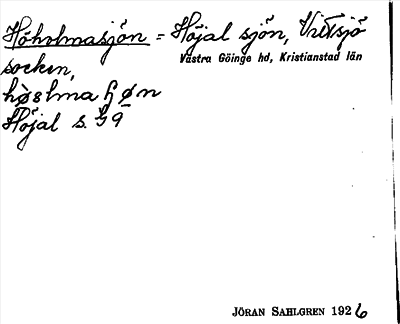 Höholmasjön = Höjalsjön, Vittsjö
Västra Göinge hd, Kristianstad län
socken,
Höjal s. 59
JÖRAN SAHLGREN 1926